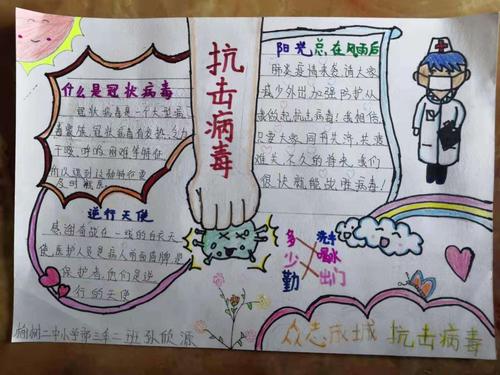 什么是冠状病毒
冠状病毒是一个大型病
毒家族,冠状病毒有发热、乏力
干咳、呼吸困难等特征
所以遇到这种特征要
及时就医
逆行天使
感谢奋战在一线的白衣天
使,医护人员是病人前面盾牌是
保护者,他们是逆
行的天使
榆树二中小学部三年二班 孙欣源
抗击病毒
阳光总在风雨后
肺炎疫情来急,请大家
减少外出加强防护从
我做起抗击病毒!我相信
只要大家同舟共济,共渡
难关,不久的将来,我们
很快就能战胜病毒!
多 洗手
少 喝水
勤 出门
众志成城 抗击病毒